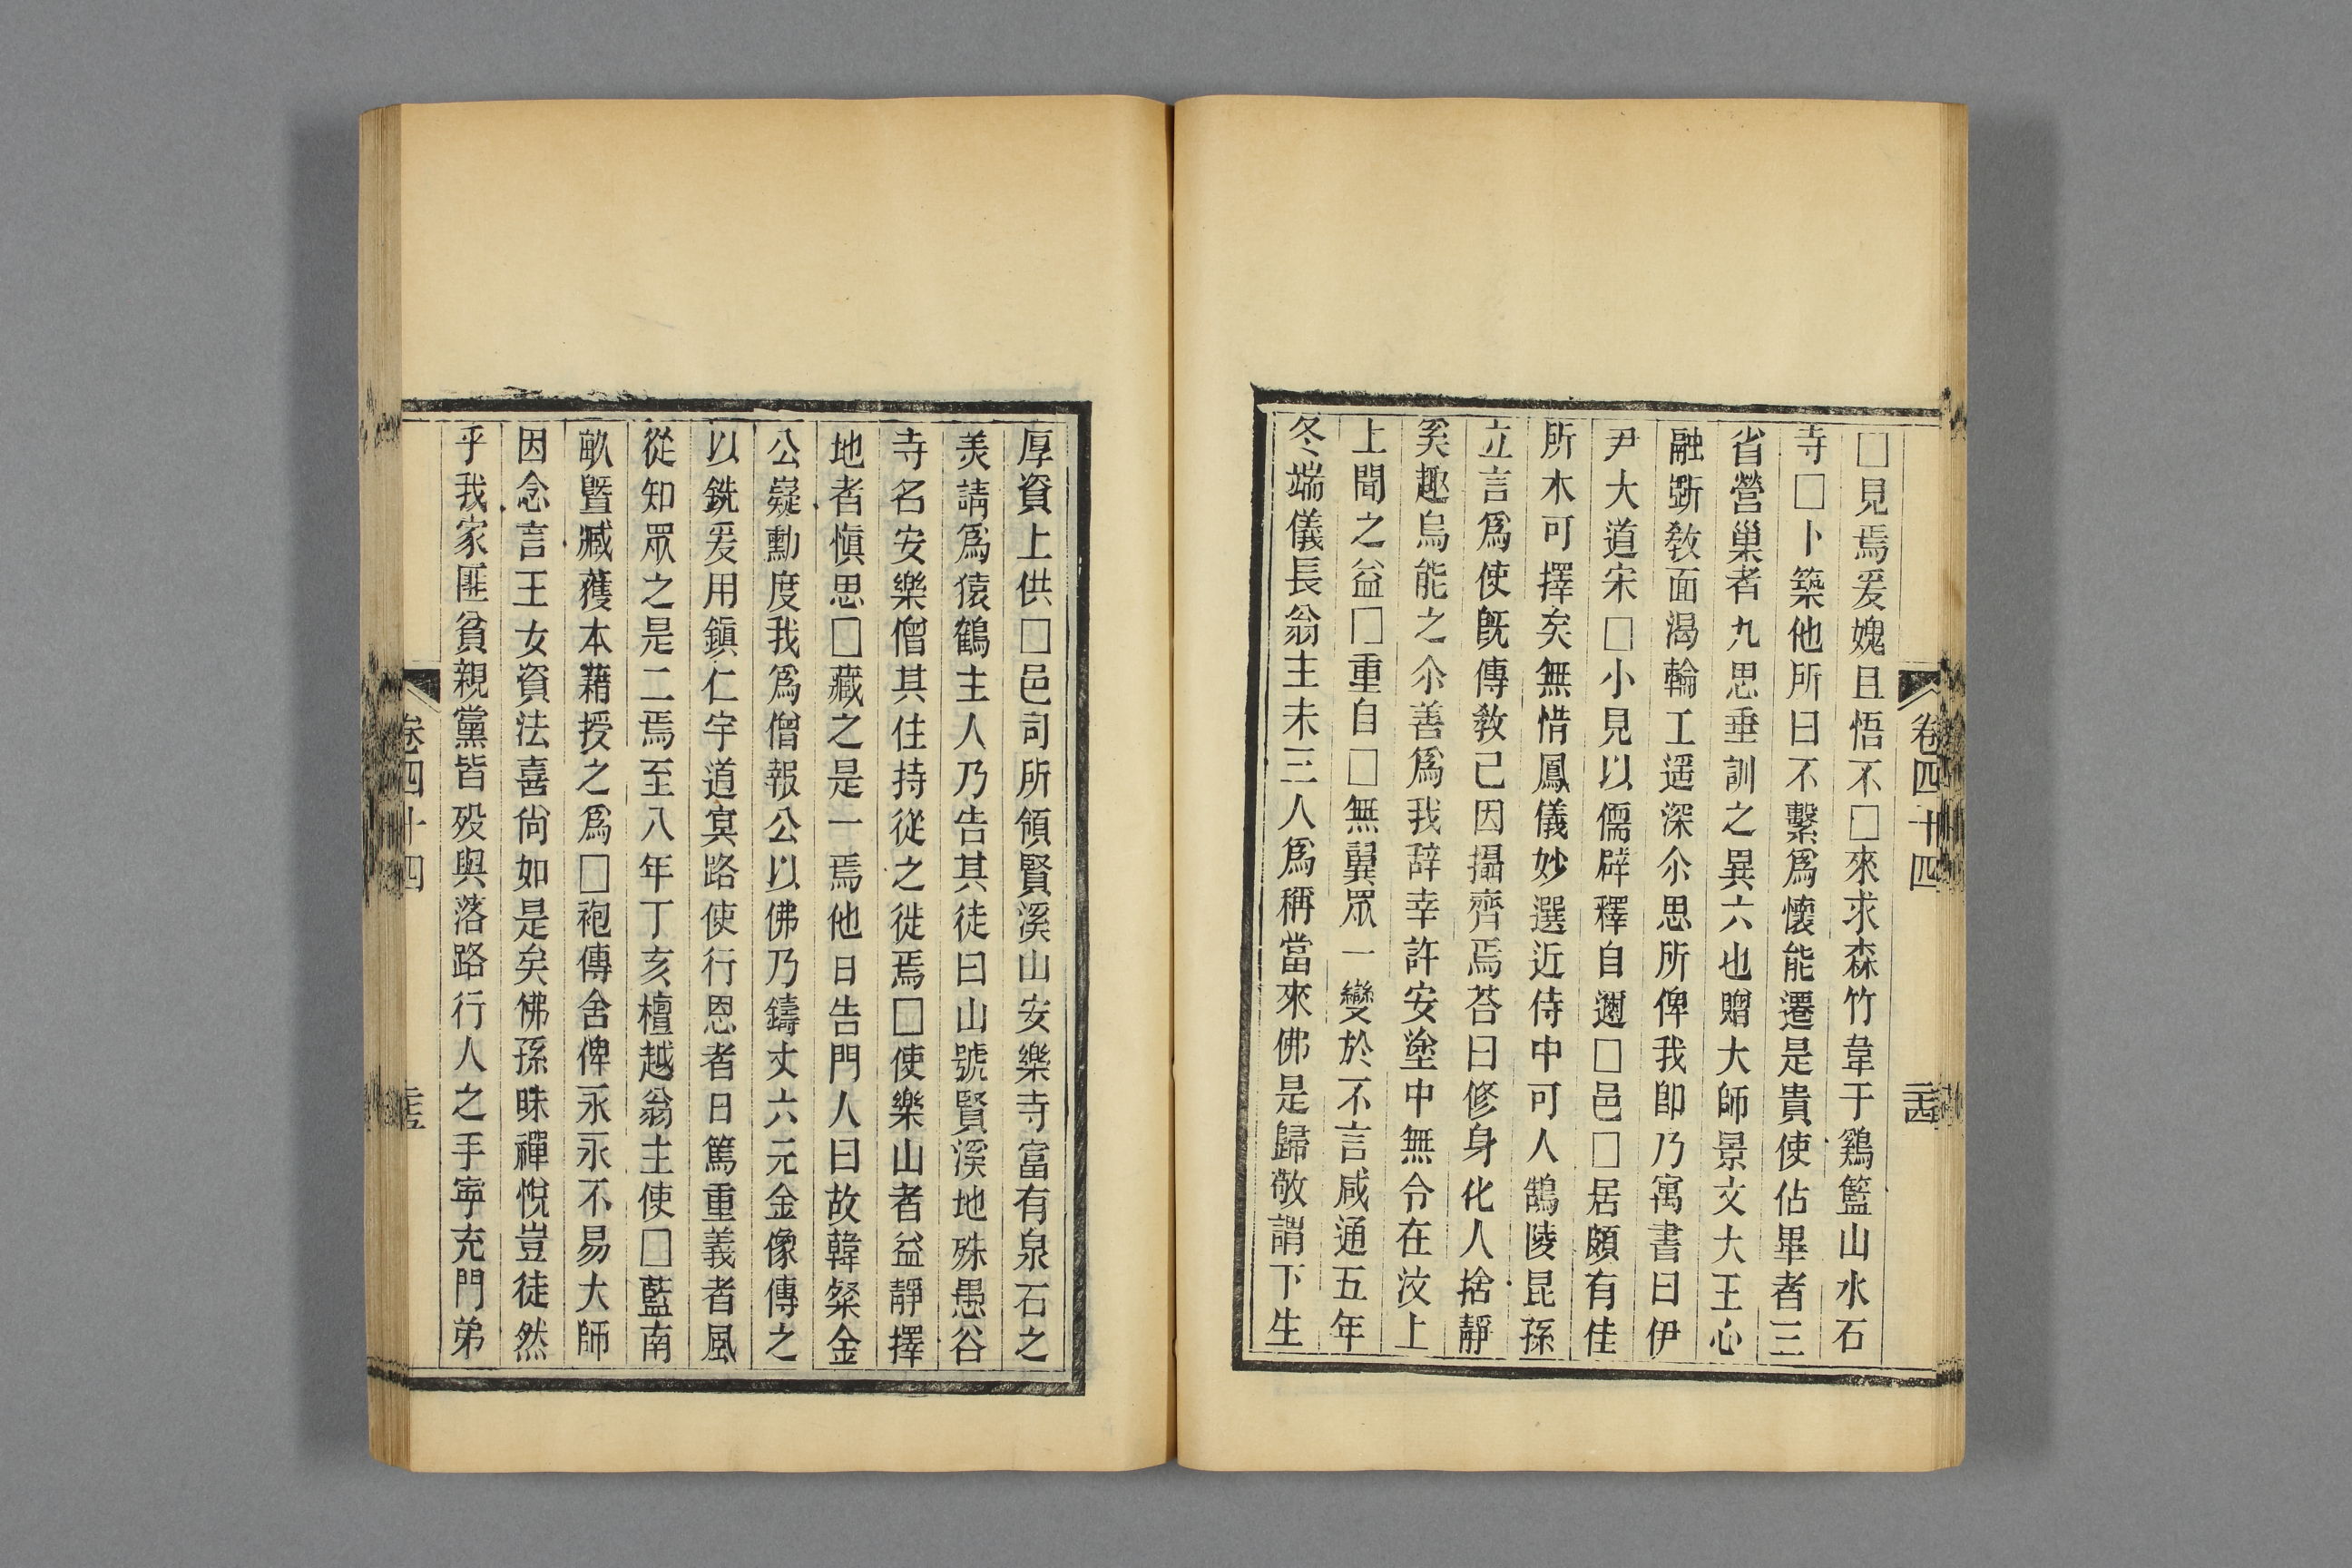 □見焉爰媿且悟不□來求森竹葦于鷄籃山水石
寺□卜築他所曰不繫爲懷能遷是貴使佔畢者三
省營巢者九思垂訓之異六也贈大師景文大王心
融鼎敎面渴輪工遥深尒思所俾我卽乃寓書曰伊
尹大道宋□小見以儒辟釋自邇□邑□居頗有佳
所木可擇矣無惜鳳儀妙選近侍中可人鵠陵昆孫
立言爲使旣傳敎已因攝齊焉荅曰修身化人捨靜
奚趣烏能之尒善爲我辭幸許安塗中無令在汶上
上聞之益□重自□無翼眾一變於不言咸通五年
冬端儀長翁主未三人爲稱當來佛是歸敬謂下生
卷四十四
二十四
厚資上供□邑司所領賢溪山安樂寺富有泉石之
美請爲猿鶴主人乃告其徒曰山號賢溪地殊愚谷
寺名安樂僧其住持從之徙焉□使樂山者益靜擇
地者愼思□藏之是一焉他日告門人曰故韓粲金
公嶷勳度我爲僧報公以佛乃鑄丈六元金像傳之
以銑爰用鎭仁宇道冥路使行恩者日篤重義者風
從知眾之是二焉至八年丁亥檀越翁主使□藍南
畝曁臧獲本藉授之爲□袍傳舍俾永永不易大師
因念言王女資法喜尙如是矣佛孫昧禪悅豈徒然
乎我家匪貧親黨皆歿與落路行人之手寧充門弟
卷四十四
二十五